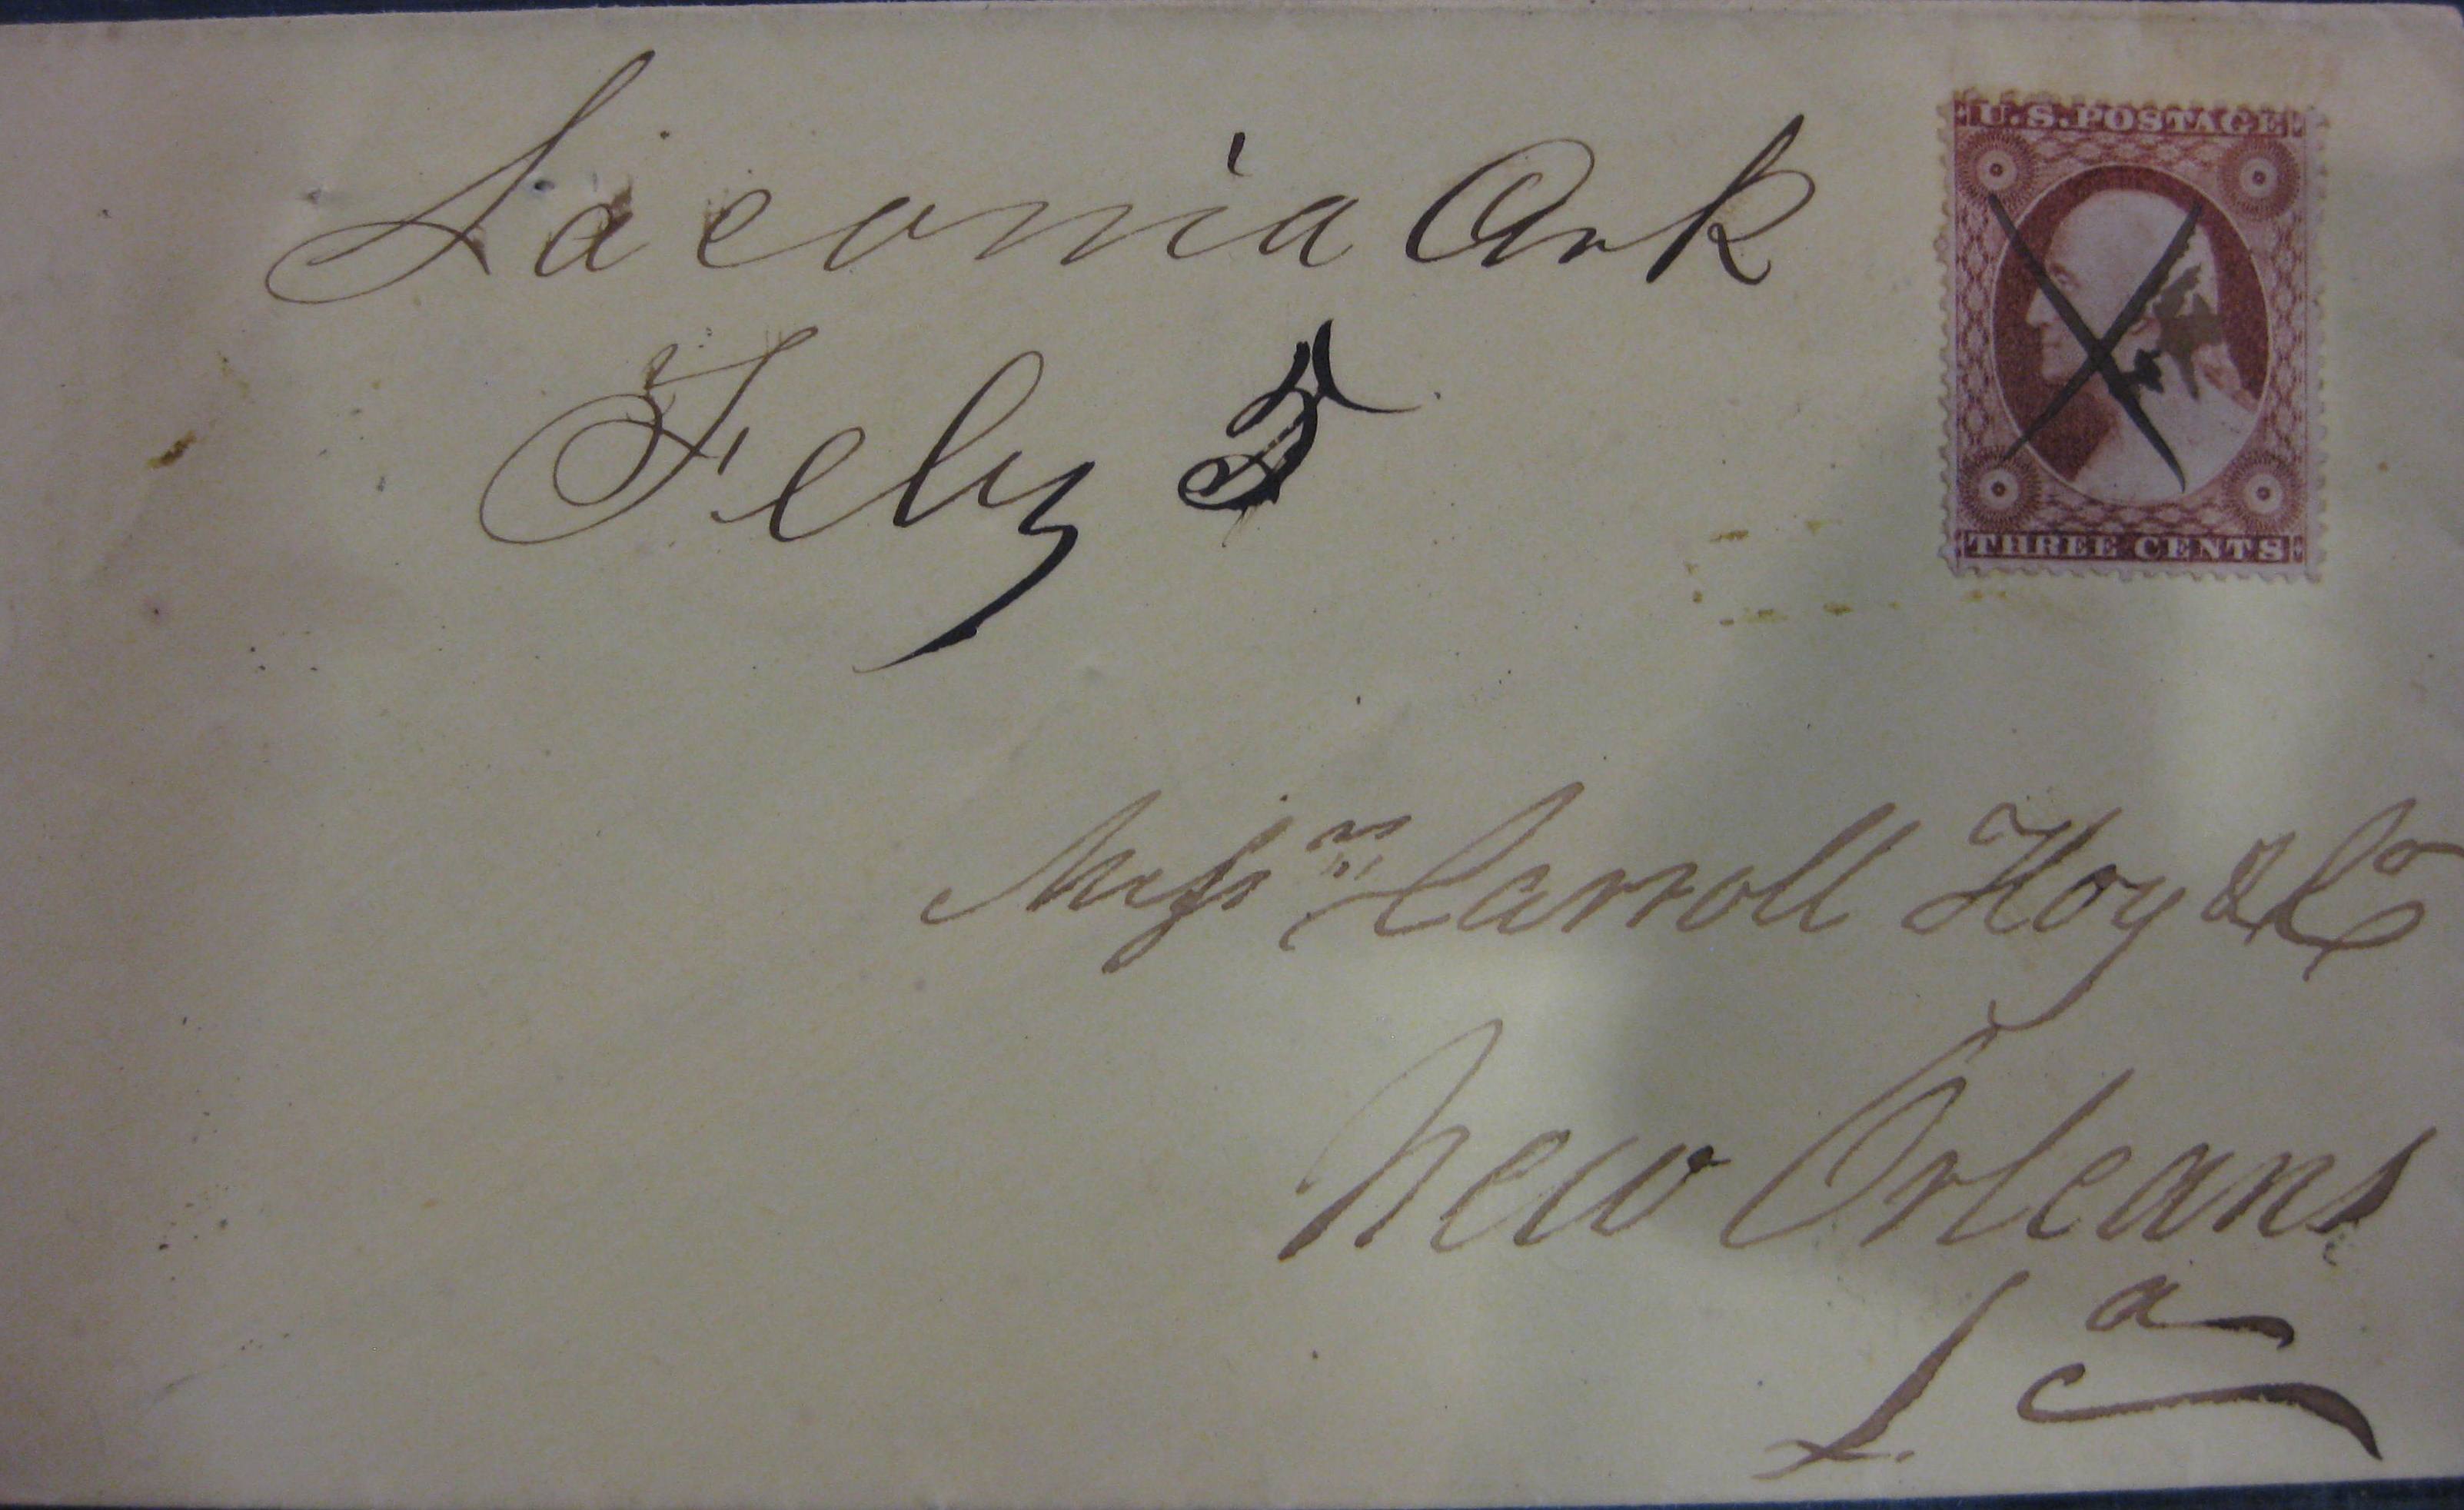 Laconia Ark
Feby 5
U.S. POSTAGE
THREE CENTS
Messrs Carroll Hoy & Co
New Orleans
La